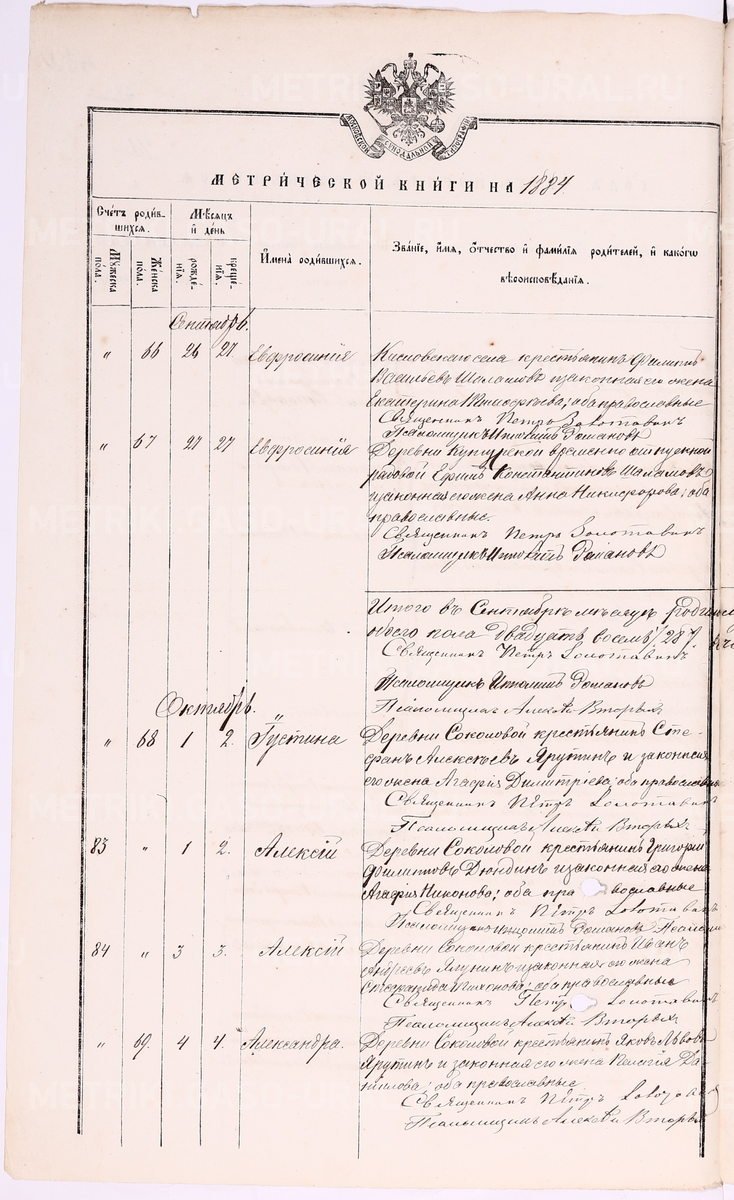 МЕТРИ́ЧЕСКОЙ КНИ́ГИ НА 1884
Сче́тъ роди́в-
шихся.
Мѣ́сяцъ
и́ де́нь
И҆мена̀ роди́вшихся.
Зва́нїе, и҆́мя, ѻ҆́тчество и҆ фами́лїя роди́телей, и҆ како́гѡ
вѣроисповѣ́данїя.
Мꙋ́жеска
по́ла.
Же́нска
по́ла.
рожде́-
нїя.
креще́-
нїя.
Сентябрь.
„ 66 26 27 Евфросинія
Кисловскаго села крестьянинъ Филиппъ
Васильевъ Шаламовъ и законная его жена
Екатерина; оба православные
Священникъ Петръ Золотавинъ
Псаломщикъ Ипполитъ Романовъ
„ 67 27 27 Евфросинія
Деревни временно отпускной
рядовой Ефимъ Константиновъ Шаламовъ
и законная его жена Анна Никифорова; оба
православные.
Священникъ Петръ Золотавинъ
Псаломщикъ Ипполитъ Романовъ
Итого въ Сентябрѣ мѣсяцѣ
пола двадцать восемь (28)
Священникъ Петръ Золотавинъ
Псаломщикъ Ипполитъ Романовъ
Псаломщикъ Алексѣй Вторыхъ
Октябрь.
„ 68 1 2. Іустина
Деревни Соколовой крестьянинъ Сте-
фанъ Алексѣевъ Ярутинъ и законная
его жена Агафія Димитріева; оба православные
Священникъ Петръ Золотавинъ
Псаломщикъ Алексѣй Вторыхъ
83 „ 1 2. Алексій
Деревни Соколовой крестьянинъ Григорій
Филипповъ Дюндинъ и законная его жена
Агафія Никонова; оба православные
Священникъ Петръ Золотавинъ
Псаломщикъ Ипполитъ Романовъ
84 „ 3 3. Алексій
Деревни Соколовой крестьянинъ Иванъ
Андреевъ и законная его жена
Стефанида; оба православные
Священникъ Петръ Золотавинъ
Псаломщикъ Алексѣй Вторыхъ
„ 69. 4 4. Александра.
Деревни Соколовой крестьянинъ Яковъ Львовъ
Ярутинъ и законная его жена Пелагія Да-
нилова; оба православные
Священникъ Петръ
Псаломщикъ Алексѣй Вторыхъ